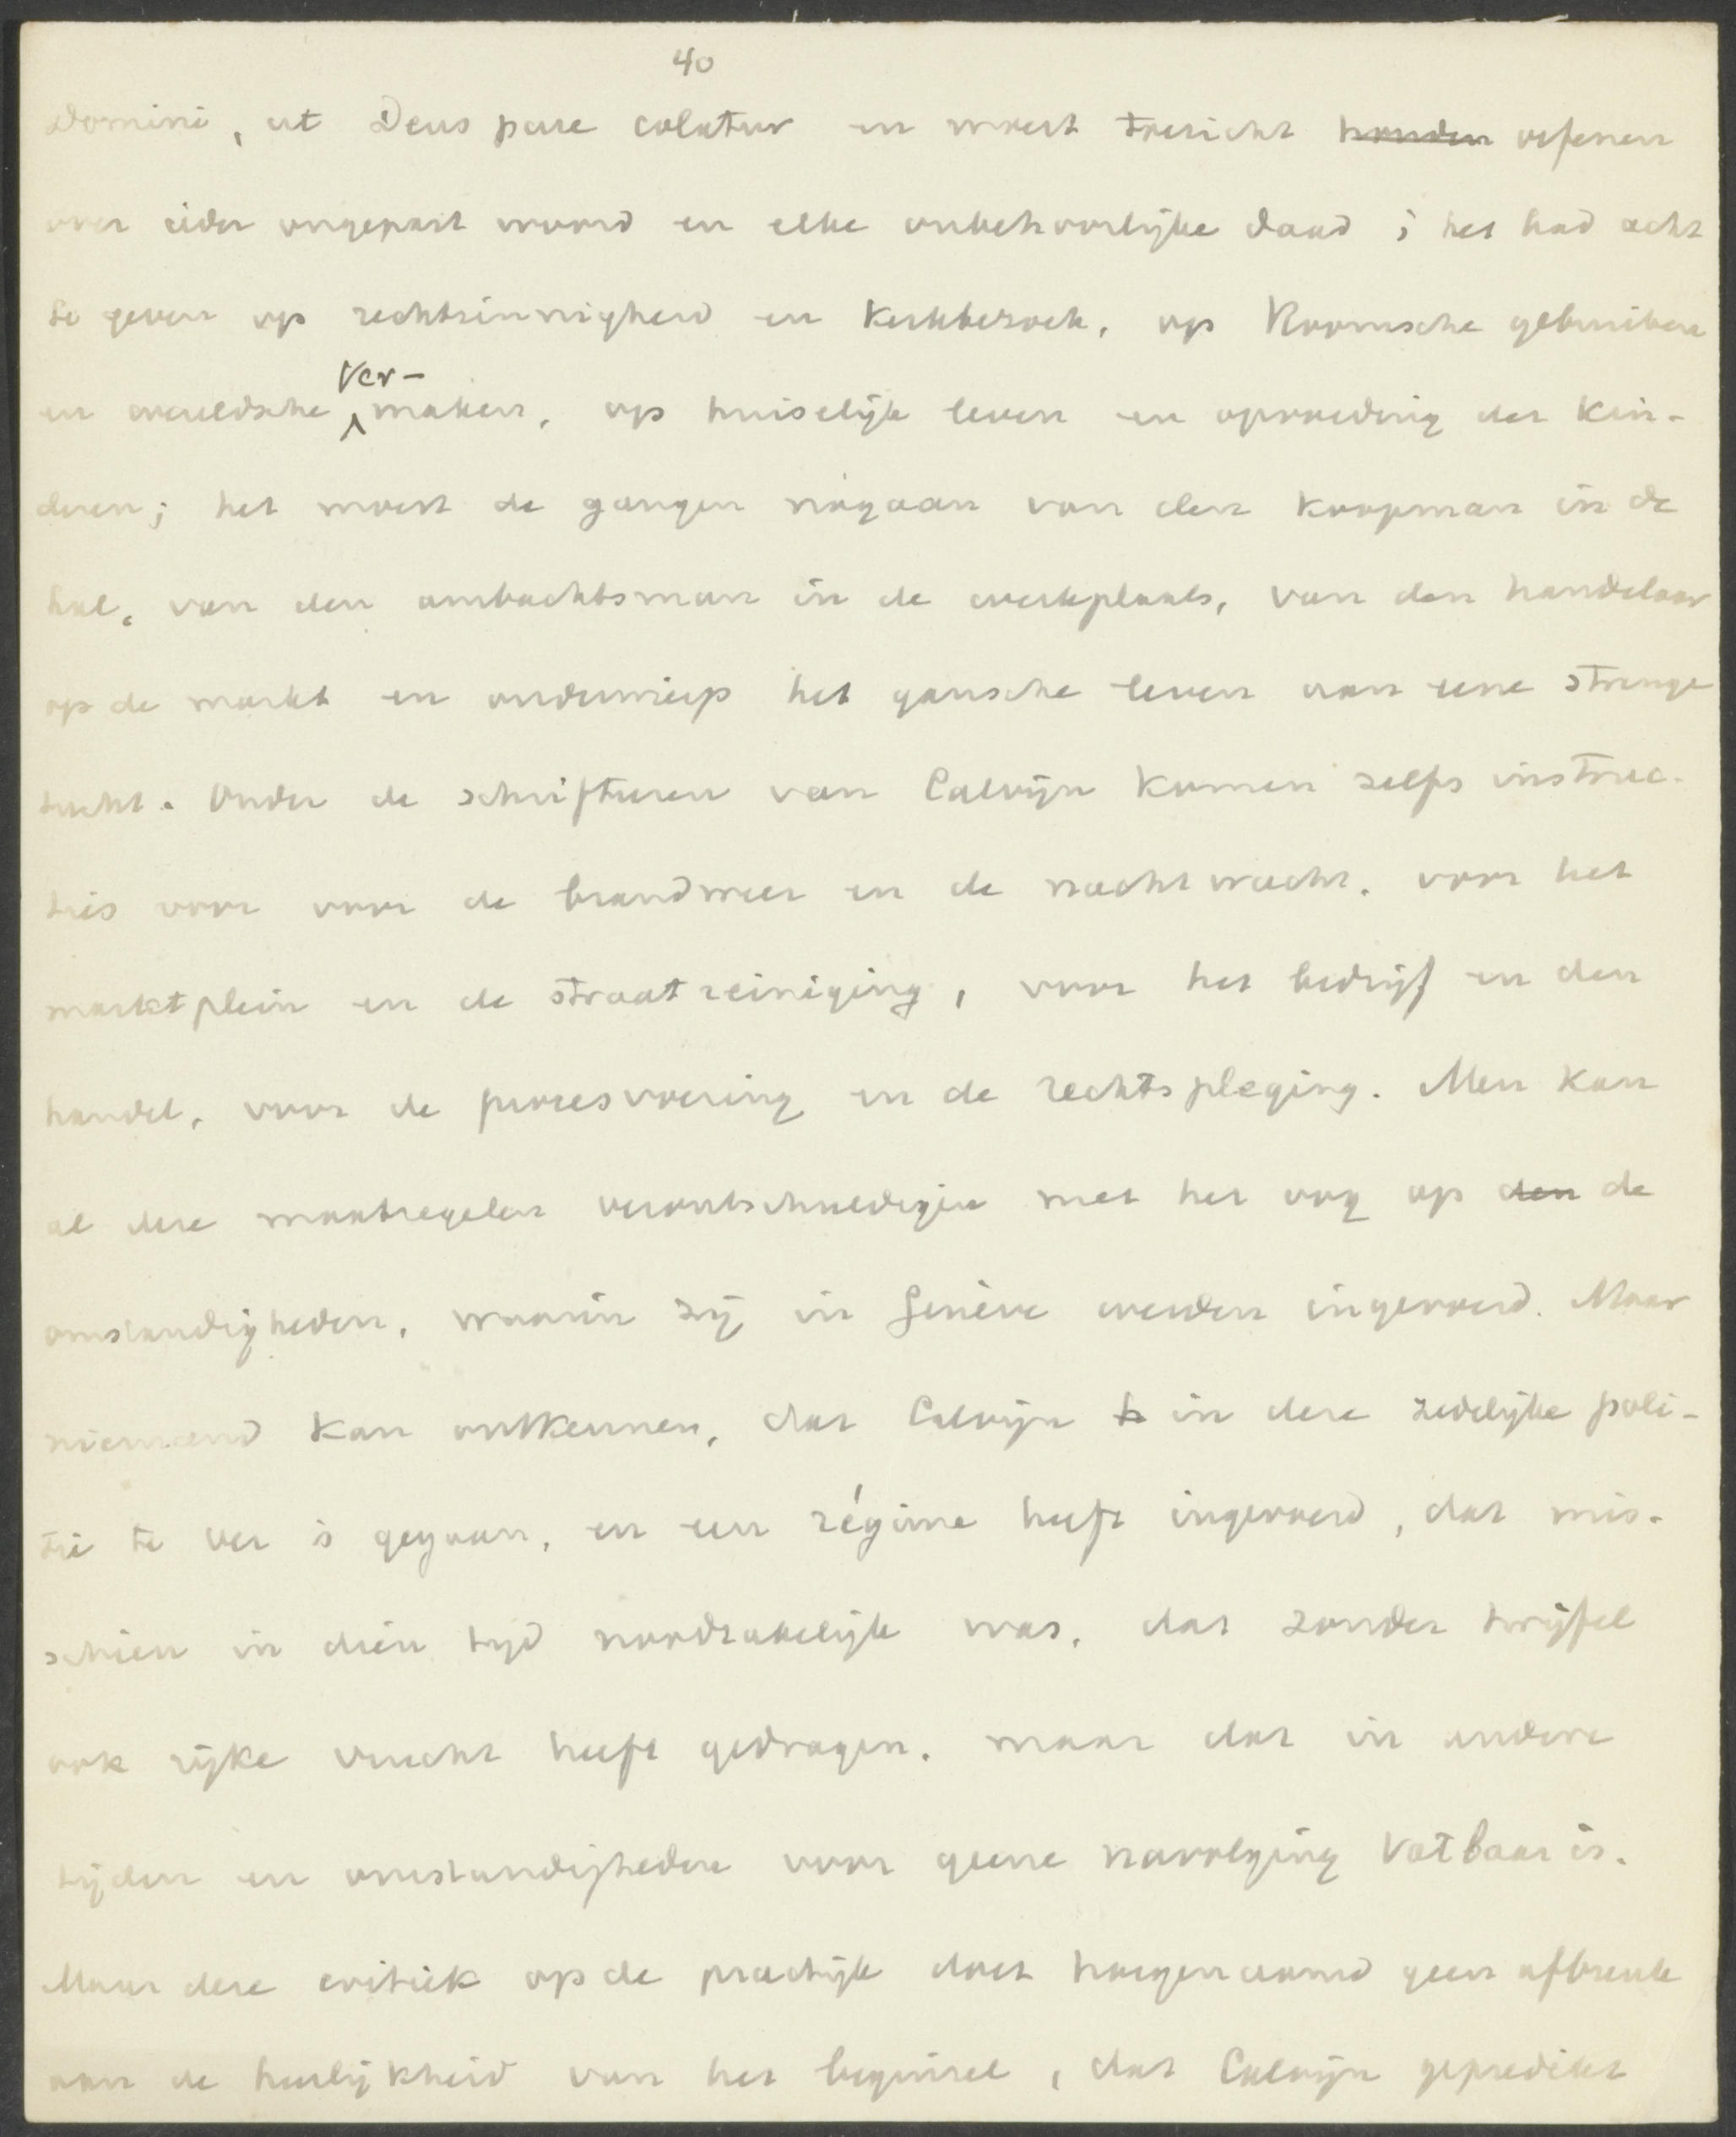 40
Domini, ut Deus pure colatur en moest toezicht houden oefenen
over ieder ongepast woord en elke onbehoorlijke daad; het had acht
te geven op rechtzinnigheid en kerkbezoek, op Roomsche gebruiken
en wereldsche ver-maken, op huiselijk leven en opvoeding der kin-
deren; het moest de gangen nagaan van den koopman in de
hal, van den ambachtsman in de werkplaats, van den handelaar
op de markt en onderwierp het gansche leven aan eene strenge
tucht. Onder de schrifturen van Calvijn komen zelfs instruc-
ties voor voor de brandweer en de nachtwacht, voor het
marktplein en de straatreiniging, voor het bedrijf en den
handel, voor de procesvoering en de rechtspleging. Men kan
al deze maatregelen verontschuldigen met het oog op den de
omstandigheden, waarin zij in Genève werden ingevoerd. Maar
niemand kan ontkennen, dat Calvijn te in deze zedelijke poli-
tie te ver is gegaan, en een régime heeft ingevoerd, dat mis-
schien in dien tijd noodzakelijk was, dat zonder twijfel
ook rijke vrucht heeft gedragen, maar dat in andere
tijden en omstandigheden voor geene navolging vatbaar is.
Maar deze critiek op de practijk doet hoegenaamd geen afbreuk
aan de heerlijkheid van het beginsel, dat Calvijn gepredikt